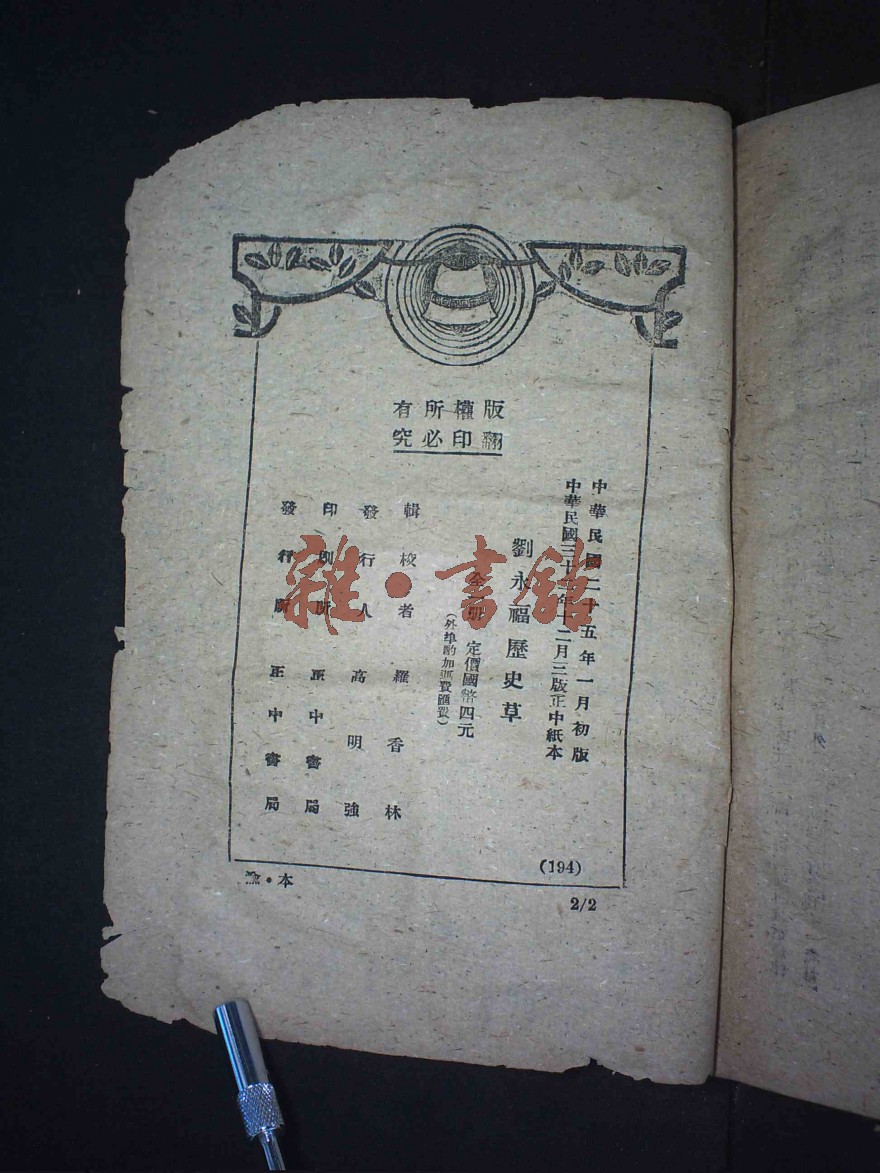 版權所有
翻印必究
中華民國二十五年一月初版
中華民國三十一年十二月三版正中紙本
劉永福歷史草
全一册 定價國幣四元
(外埠酌加運費匯費)
輯校者 羅香林
發行人 高明強
印刷所 正中書局
發行所 正中書局
(194)
本
2/2
雜·書館